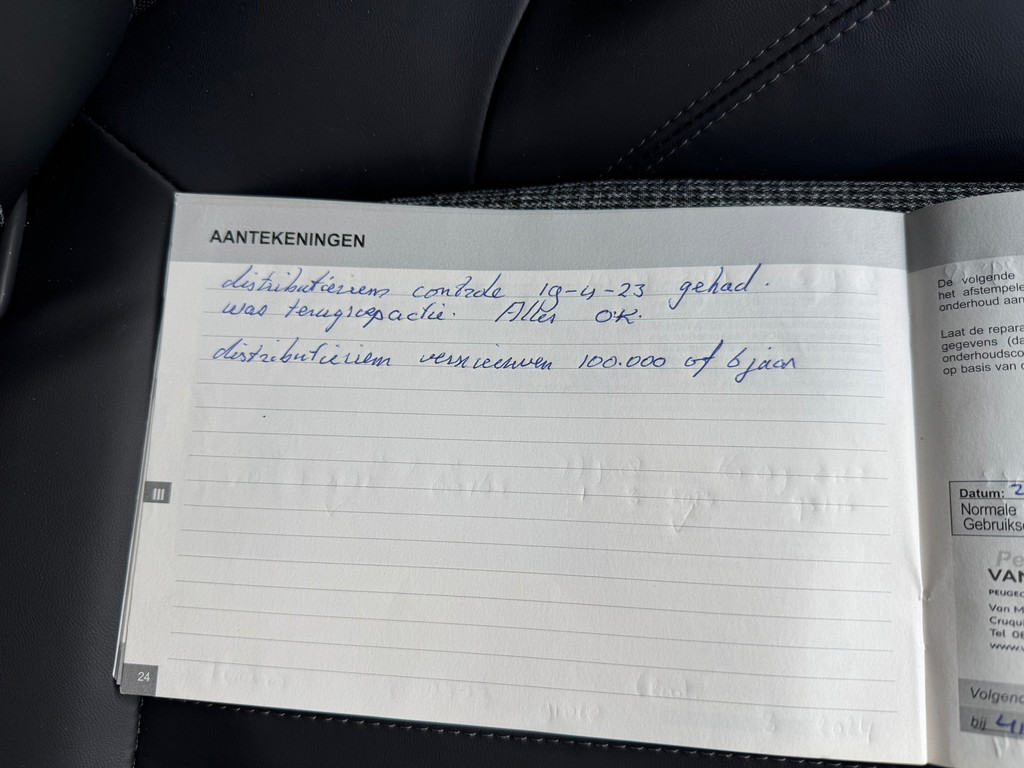 AANTEKENINGEN
distributieriem controle 19-4-23 gehad.
was terugroepactie. Alles OK.
distributieriem vernieuwen 100.000 of 6 jaar
III
24
De volgende
het afstempele
onderhoud aan
Laat de repara
gegevens (da
onderhoudsco
op basis van
Datum: 2
Normale
Gebruiks
Pe
VAN
PEUGEO
Van M
Cruqui
Tel 0
www.v
Volgend
bij 41